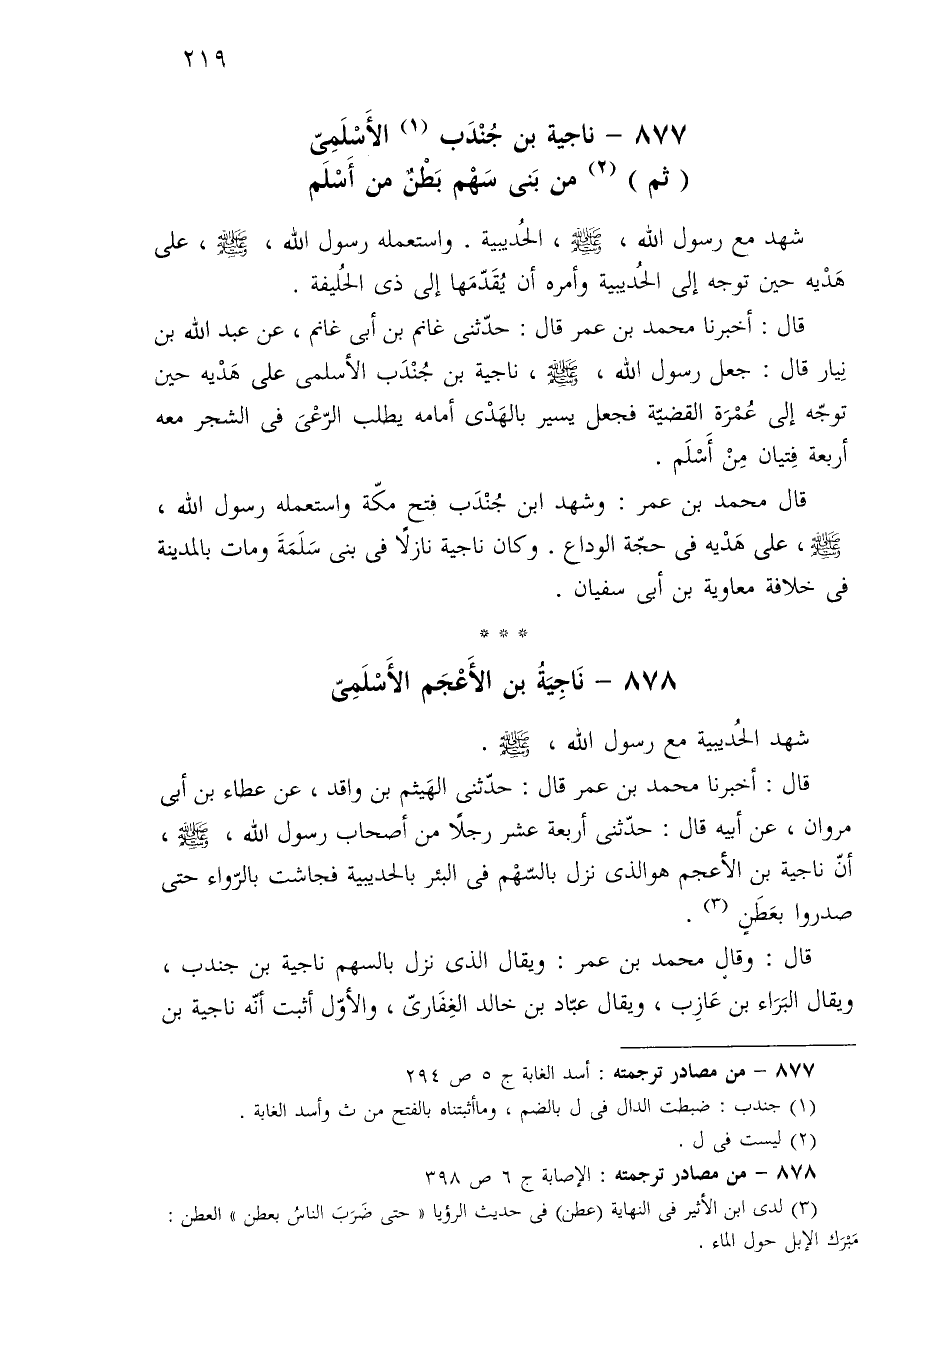 ٢١٩
٨٧٧ – ناجية بن جُنْدَب (١) الأَسْلَمِىّ
( ثم ) (٢) من بَنى سَهْم بَطْنٌ من أَسْلَم
شهد مع رسول الله ، ﷺ ، الحُديبية . واستعمله رسول الله ، ﷺ ، على
هَدْيه حين توجه إلى الحُديبية وأمره أن يُقَدّمَها إلى ذى الحُليفة .
قال : أخبرنا محمد بن عمر قال : حدّثنى غانم بن أبى غانم ، عن عبد الله بن
نِيار قال : جعل رسول الله ، ﷺ ، ناجية بن جُنْدَب الأسلمى على هَدْيه حين
توجّه إلى عُمْرَة القضيّة فجعل يسير بالهَدْى أمامه يطلب الرّعْىَ فى الشجر معه
أربعة فِتيان مِنْ أَسْلَم .
قال محمد بن عمر : وشهد ابن جُنْدَب فتح مكّة واستعمله رسول الله ،
ﷺ ، على هَدْيه فى حجّة الوداع . وكان ناجية نازلًا فى بنى سَلَمَةَ ومات بالمدينة
فى خلافة معاوية بن أبى سفيان .
* * *
٨٧٨ – نَاجِيَةُ بن الأَعْجَم الأَسْلَمِىّ
شهد الحُديبية مع رسول الله ، ﷺ .
قال : أخبرنا محمد بن عمر قال : حدّثنى الهَيثم بن واقد ، عن عطاء بن أبى
مروان ، عن أبيه قال : حدّثنى أربعة عشر رجلًا من أصحاب رسول الله ، ﷺ ،
أنّ ناجية بن الأعجم هوالذى نزل بالسّهْم فى البئر بالحديبية فجاشت بالرّواء حتى
صدروا بعَطَنٍ (٣) .
قال : وقال محمد بن عمر : ويقال الذى نزل بالسهم ناجية بن جندب ،
ويقال البَرَاء بن عَازِب ، ويقال عبّاد بن خالد الغِفَارىّ ، والأوّل أثبت أنّه ناجية بن
٨٧٧ – من مصادر ترجمته : أسد الغابة ج ٥ ص ٢٩٤
(١) جندب : ضبطت الدال فى ل بالضم ، وماأثبتناه بالفتح من ث وأسد الغابة .
(٢) ليست فى ل .
٨٧٨ – من مصادر ترجمته : الإصابة ج ٦ ص ٣٩٨
(٣) لدى ابن الأثير فى النهاية (عطن) فى حديث الرؤيا « حتى ضَرَبَ الناسُ بعطن » العطن :
مَبْرَك الإبل حول الماء .